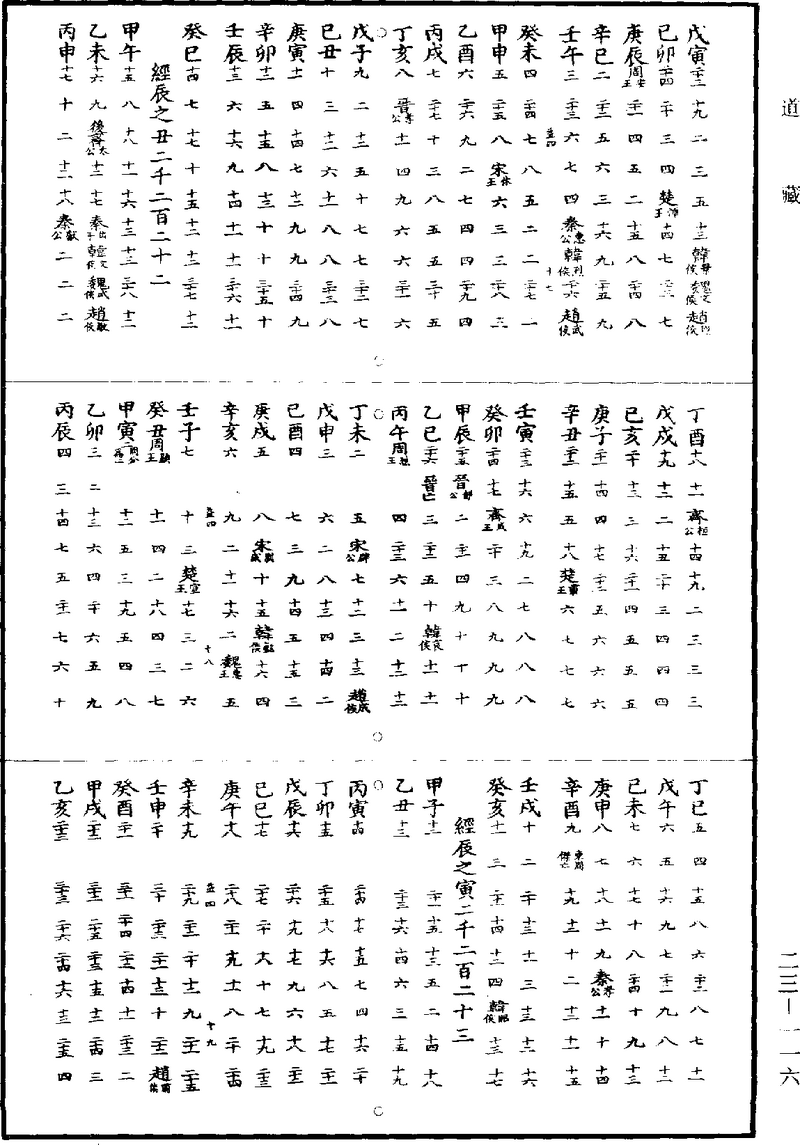 道藏
戊寅 二十三 十九 二 三 五 十三 韓景侯 魏文侯 趙烈侯
己卯 二十四 二十 三 四 楚悼王 十四 七 二十三 七
庚辰 周安王 二十一 四 五 二 十五 八 二十四 八
辛巳 二 二十二 五 六 三 十六 九 二十五 九
壬午 三 二十三 六 七 四 秦惠公 韓烈侯 二十六 趙武侯
十七
癸未 四 二十四 七 八 五 二 二 二十七 二
甲申 五 二十五 八 宋休王 六 三 三 二十八 三
乙酉 六 二十六 九 二 七 四 四 二十九 四
丙戌 七 二十七 十 三 八 五 五 三十 五
丁亥 八 晉孝公 十一 四 九 六 六 三十一 六
○
戊子 九 二 十二 五 十 七 七 三十二 七
己丑 十 三 十三 六 十一 八 八 三十三 八
庚寅 十一 四 十四 七 十二 九 九 三十四 九
辛卯 十二 五 十五 八 十三 十 十 三十五 十
壬辰 十三 六 十六 九 十四 十一 十一 三十六 十一
癸巳 十四 七 十七 十 十五 十二 十二 三十七 十二
經辰之丑二千二百二十二
甲午 十五 八 十八 十一 十六 十三 十三 三十八 十二
乙未 十六 九 後齊太公 十二 十七 秦出子 韓文侯 魏武侯 趙敬侯
丙申 十七 十 二 十三 十八 秦獻公 二 二 二
○
丁酉 十八 十一 齊桓公 十四 十九 二 三 三 三
戊戌 十九 十二 二 十五 二十 三 四 四 四
己亥 二十 十三 三 十六 二十一 四 五 五 五
庚子 二十一 十四 四 十七 二十二 五 六 六 六
辛丑 二十二 十五 五 十八 楚肅王 六 七 七 七
壬寅 二十三 十六 六 十九 二 七 八 八 八
癸卯 二十四 十七 齊威王 二十 三 八 九 九 九
甲辰 二十五 晉靜公 二 二十一 四 九 十 十 十
乙巳 二十六 晉亡 三 二十二 五 十 韓哀侯 十一 十一
丙午 周烈王 四 二十三 六 十一 二 十二 十二
○
丁未 二 五 宋辟公 七 十二 三 十三 趙成侯
戊申 三 六 二 八 十三 四 十四 二
己酉 四 七 三 九 十四 五 十五 三
庚戌 五 八 宋剔成 十 十五 韓懿侯 十六 四
辛亥 六 九 二 十一 十六 二 魏惠王 五
十八
壬子 七 十 三 楚宣王 十七 三 二 六
癸丑 周顯王 十一 四 二 十八 四 三 七
甲寅 二 十二 五 三 十九 五 四 八
乙卯 三 二 十三 六 四 二十 六 五 九
丙辰 四 三 十四 七 五 二十一 七 六 十
○
丁巳 五 四 十五 八 六 二十二 八 七 十一
戊午 六 五 十六 九 七 二十三 九 八 十二
己未 七 六 十七 十 八 二十四 十 九 十三
庚申 八 七 十八 十一 九 秦孝公 十一 十 十四
辛酉 九 十九 十二 十 二 十二 十一 十五
壬戌 十 二 二十 十三 十一 三 十三 十二 十六
癸亥 十一 三 二十一 十四 十二 四 韓昭侯 十三 十七
經辰之寅二千二百二十三
甲子 十二 二十二 十五 十三 五 二 十四 十八
乙丑 十三 二十三 十六 十四 六 三 十五 十九
○
丙寅 十四 二十四 十七 十五 七 四 十六 二十
丁卯 十五 二十五 十八 十六 八 五 十七 二十一
戊辰 十六 二十六 十九 十七 九 六 十八 二十二
己巳 十七 二十七 二十 十八 十 七 十九 二十三
庚午 十八 二十八 二十一 十九 十一 八 二十 二十四
辛未 十九 二十九 二十二 二十 十二 九 二十一 二十五
十九
壬申 二十 三十 二十三 二十一 十三 十 二十二 趙肅侯
癸酉 二十一 三十一 二十四 二十二 十四 十一 二十三 二
甲戌 二十二 三十二 二十五 二十三 十五 十二 二十四 三
乙亥 二十三 三十三 二十六 二十四 十六 十三 二十五 四
○
二三—一一六